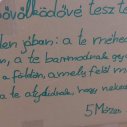 bővölködővé tesz té
den jóban: a te méhed
, a te barmodnak gyü
a földön, amely felől m
a te atyáidnak, hogy neked
5Mózes